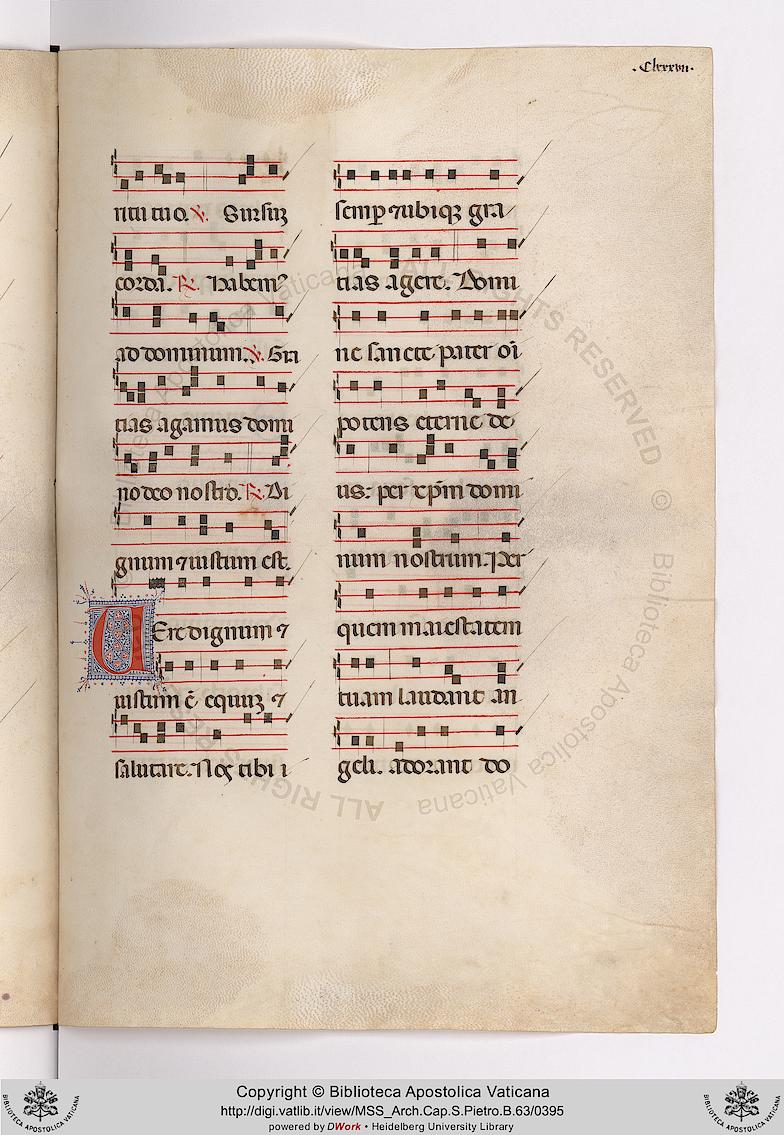 ·Clxxxvii·
ritu tuo. ℣. Sursuz
corda. ℟. Habem⁹
ad dominum. ℣. Gra
tias agamus domi
no deo nostro. ℟. Di
gnum ⁊ iustum est.
UEre dignum ⁊
iustum ē. equuz ⁊
salutare. Nos tibi i
semꝑ ⁊ ubiqz gra
tias agere. Domi
ne sancte pater oī
potens eterne de
us: per xp̄m domi
num nostrum. Per
quem maiestatem
tuam laudant an
geli. adorant do
ALL RIGHTS RESERVED © Biblioteca Apostolica Vaticana
Copyright © Biblioteca Apostolica Vaticana
http://digi.vatlib.it/view/MSS_Arch.Cap.S.Pietro.B.63/0395
powered by DWork • Heidelberg University Library